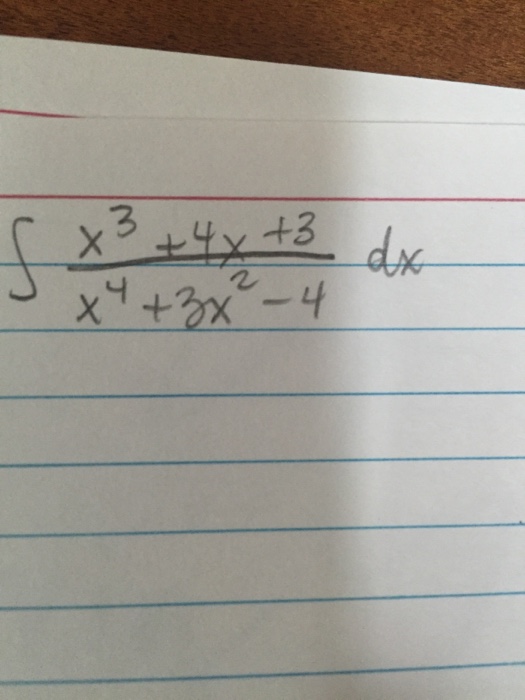 ∫ x³ + 4x + 3 / x⁴ + 3x² - 4 dx